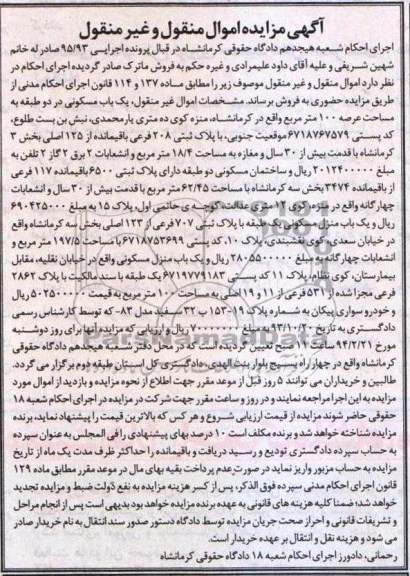 آگهی مزایده اموال منقول و غیر منقول
اجرای احکام شعبه هیجدهم دادگاه حقوقی کرمانشاه در قبال پرونده اجرایی ۹۵/۹۳ صادر له خانم
شهین شریفی و علیه آقای داود علیمرادی و غیره حکم به فروش ماترک صادر گردیده اجرای احکام در
نظر دارد اموال منقول و غیر منقول موصوف زیر را مطابق ماده ۱۳۷ و ۱۱۴ قانون اجرای احکام مدنی از
طریق مزایده حضوری به فروش برساند. مشخصات اموال غیر منقول، یک باب مسکونی در دو طبقه به
مساحت عرصه ۱۰۰ متر مربع واقع در کرمانشاه، منزه کوی ده متری یارمحمدی، نبش بن بست طلوع،
کد پستی ۶۷۱۸۷۶۷۵۷۹ موقعیت جنوبی، با پلاک ثبتی ۲۰۸ فرعی باقیمانده از ۱۲۵ اصلی بخش ۳
کرمانشاه با قدمت بیش از ۳۰ سال و مغازه به مساحت ۱۸/۴ متر مربع و انشعابات ۲ برق ۲ گاز ۲ تلفن به
مبلغ ۲۰۱۲۴۰۰۰۰۰ ریال و ساختمان مسکونی دو طبقه دارای پلاک ثبتی ۶۵۰۰ باقیمانده ۱۱۷ فرعی
از باقیمانده ۳۴۷۴ بخش سه کرمانشاه با مساحت ۶۲/۴۵ متر مربع با قدمت بیش از ۳۰ سال و انشعابات
چهارگانه واقع در منزه، کوی ۱۲ متری عدالت، کوچه ی حاتمی اول، پلاک ۱۵ به مبلغ ۶۹۰۴۲۵۰۰۰
ریال و یک باب منزل مسکونی یک طبقه با پلاک ثبتی ۷۰۷ فرعی از ۱۲۳ اصلی بخش سه کرمانشاه واقع
در خیابان سعدی، کوی نقشبندی، پلاک ۱۰، کد پستی ۶۷۱۸۷۵۳۶۹۹ با مساحت ۱۹۷/۵ متر مربع و
انشعابات چهارگانه به مبلغ ۲۸۰۵۵۰۰۰۰۰ ریال و یک باب منزل مسکونی واقع در خیابان نقلیه، مقابل
بیمارستان، کوی نظام، پلاک ۱۱ کد پستی ۶۷۱۹۷۷۹۱۸۳ یک طبقه با سند مالکیت با پلاک ۲۸۶۲
فرعی مجزا شده از ۵۳۱ فرعی از ۱۱ و ۱۹ اصلی به مساحت ۱۰۰ متر مربع به قیمت ۵۰۲۵۰۰۰۰۰ ریال
و خودرو سواری پیکان به شماره پلاک ۱۹-۱۵۳ ب ۳۲ سفید مدل ۸۳- که توسط کارشناس رسمی
دادگستری به تاریخ ۹۳/۱۰/۲۰ به مبلغ ۷۰۰۰۰۰۰۰ ریال و ارزیابی که مزایده آنها برای روز دوشنبه
مورخ ۹۴/۲/۲۱ ساعت ۱۰ صبح تعیین گردیده است که در محل دفتر شعبه هیجدهم دادگاه حقوقی
کرمانشاه واقع در چهار راه بسیج بلوار بنت الهدی، دادگستری کل استان طبقه دوم برگزار می گردد.
طالبین و خریداران می توانند ۵ روز قبل از موعد مقرر جهت اطلاع از نحوه مزایده و بازدید از اموال مورد
مزایده به این اجرا مراجعه نمایند و در روز و ساعت مقرر جهت شرکت در مزایده در اجرای احکام شعبه ۱۸
حقوقی حاضر شوند مزایده از قیمت ارزیابی شروع و هر کس که بالاترین قیمت را پیشنهاد نماید، برنده
مزایده شناخته خواهد شد و برنده مکلف است ۱۰ درصد بهای پیشنهادی را فی المجلس به عنوان سپرده
به حساب سپرده دادگستری تودیع و رسید دریافت و باقیمانده را حداکثر ظرف مدت یک ماه از تاریخ
مزایده به حساب مزبور واریز نماید در صورت عدم پرداخت بقیه بهای مال در موعد مقرر مطابق ماده ۱۲۹
قانون اجرای احکام مدنی سپرده فوق الذکر، پس از کسر هزینه مزایده به نفع دولت ضبط و مزایده تجدید
خواهد شد؛ ضمنا کلیه هزینه های قانونی به عهده برنده مزایده خواهد بود بدیهی است پس از انجام مراحل
و تشریفات قانونی و احراز صحت جریان مزایده توسط دادگاه دستور صدور سند انتقال به نام خریدار صادر
می شود و هزینه نقل و انتقال بر عهده خریدار است.
رحمانی، دادورز اجرای احکام شعبه ۱۸ دادگاه حقوقی کرمانشاه